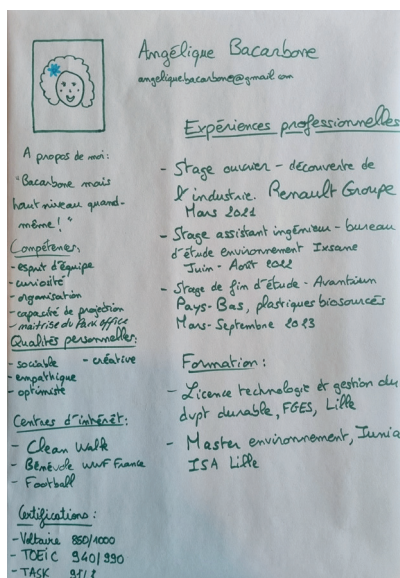 Angélique Bacarbone
angelique.bacarbone@gmail.com
A propos de moi:
"Bacarbone mais
haut niveau quand-
même ! "
Compétences:
- esprit d'équipe
- curiosité
- organisation
- capacité de projection
- maîtrise du Pack office
Qualités personnelles:
- sociable - créative
- empathique
- optimiste
Centres d'intérêt:
- Clean Walk
- Bénévole WWF France
- Football
Certifications :
- Voltaire 850/1000
- TOEIC 940/990
- TASK
Expériences professionnelles
- Stage ouvrier - découverte de
l'industrie. Renault Groupe
Mars 2021
- Stage assistant ingénieur - bureau
d'étude environnement Ixsane
Juin - Août 2022
- Stage de fin d'étude - Avantium
Pays-Bas, plastiques biosourcés
Mars-Septembre 2023
Formation :
- Licence technologie et gestion du
dvpt durable, FGES, Lille
- Master environnement, Junia
ISA Lille